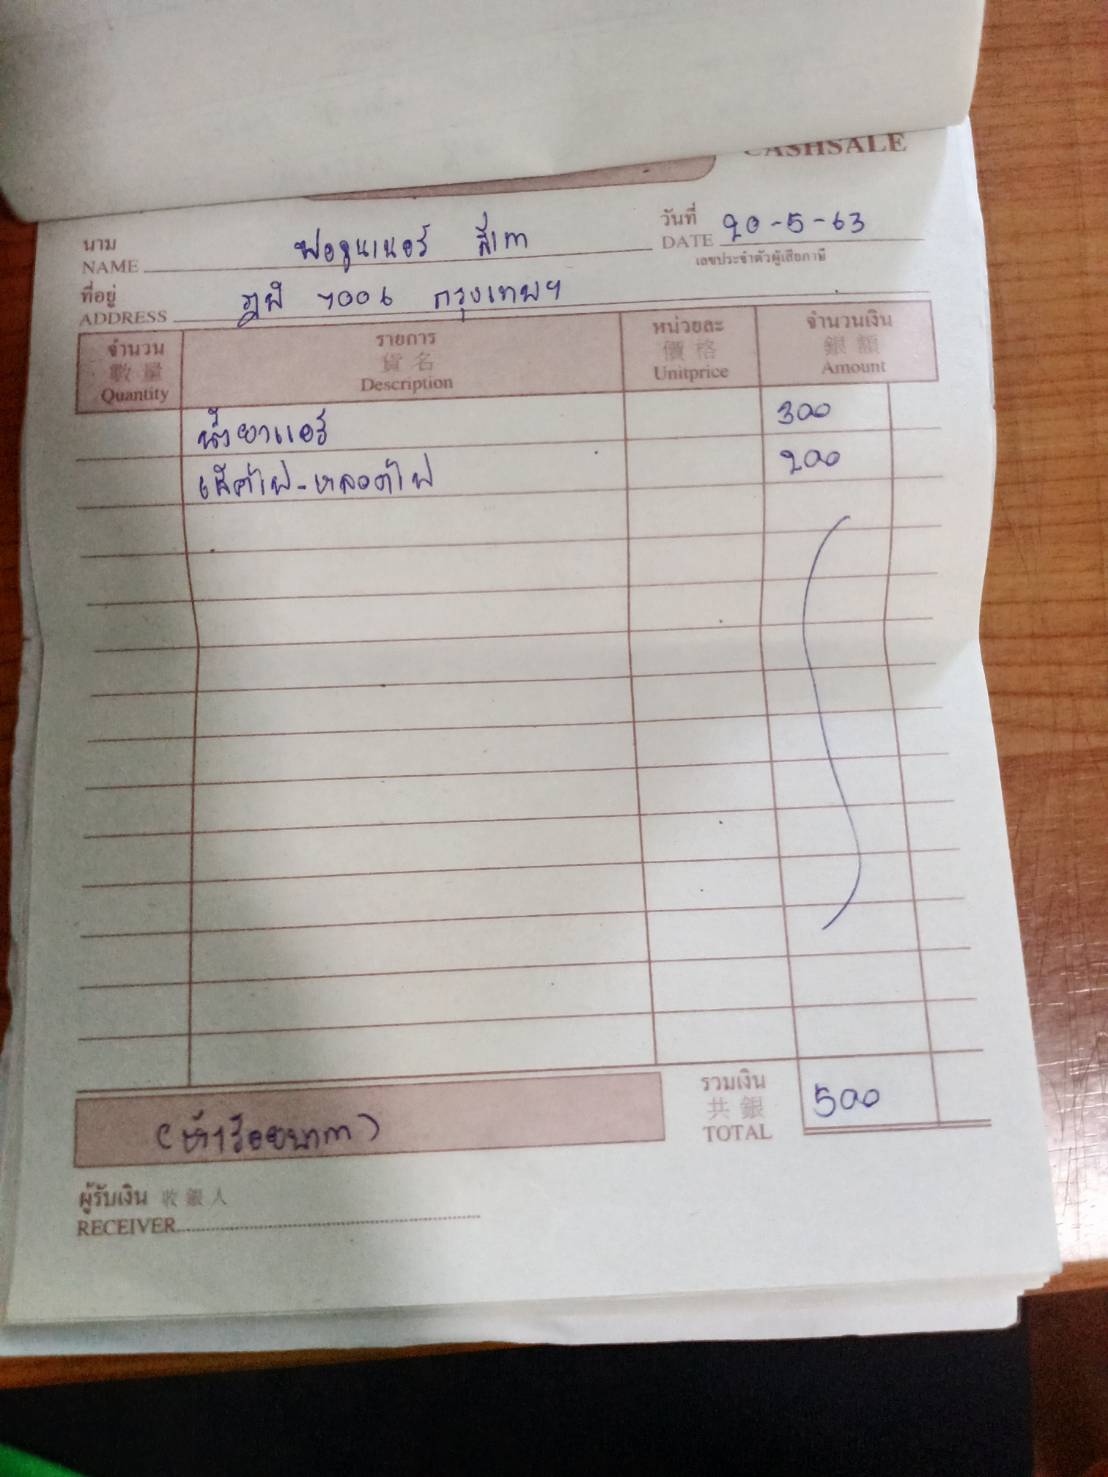 CASHSALE
นาม
NAME ฟอจูนเนอร์ สีเทา
วันที่
DATE 20-5-63
เลขประจำตัวผู้เสียภาษี
ที่อยู่
ADDRESS 7006 กรุงเทพฯ
จำนวน 數量 Quantity
รายการ 貨名 Description
หน่วยละ 價格 Unitprice
จำนวนเงิน 銀額 Amount
น้ำยาแอร์ 300
เช็คไฟ-หลอดไฟ 200
รวมเงิน
共銀
TOTAL 500
(ห้าร้อยบาท)
ผู้รับเงิน 收銀人
RECEIVER